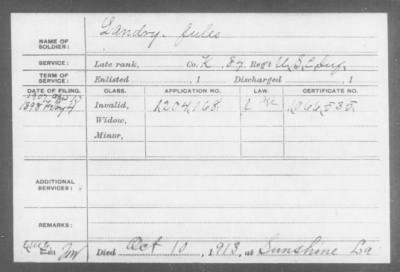 NAME OF SOLDIER: Landry, Jules
SERVICE: Late rank, Co. K, Regt U.S.C. Inf.
TERM OF SERVICE: Enlisted , 1 Discharged , 1
DATE OF FILING. CLASS. APPLICATION NO. LAW. CERTIFICATE NO.
1898 Invalid, 1204168
Widow,
Minor,
ADDITIONAL SERVICES:
REMARKS:
Died Oct 10, 1913, at Sunshine La